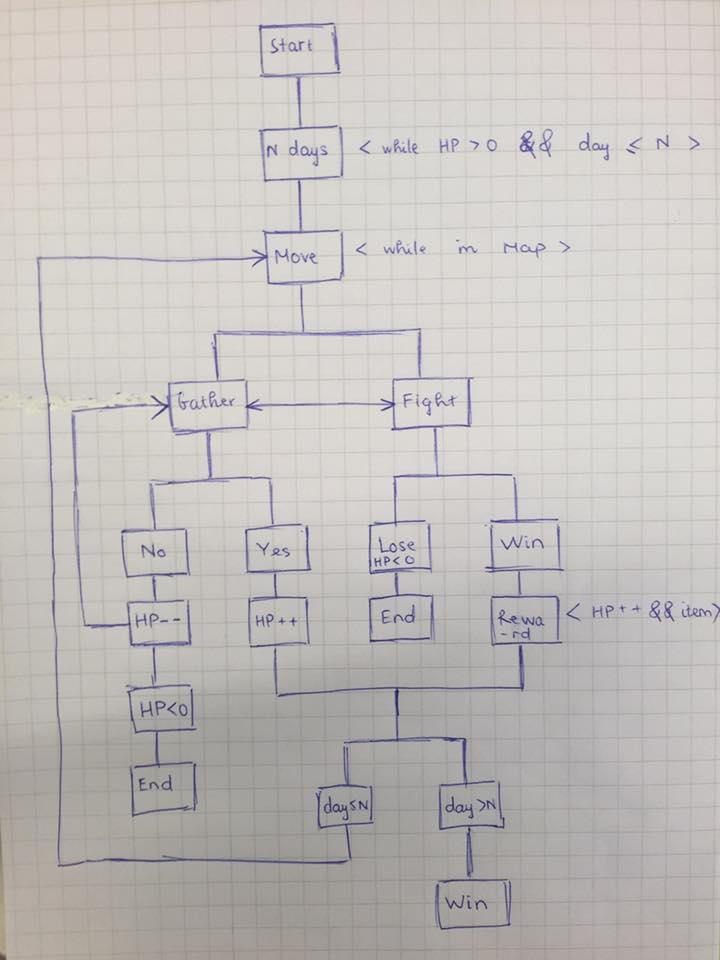 Start
N days
< while HP > 0 && day ≤ N >
Move
< while in Map >
Gather
Fight
No
Yes
Lose
HP<0
Win
HP--
HP++
End
Rewa
-rd
< HP++ && item>
HP<0
End
day≤N
day >N
Win